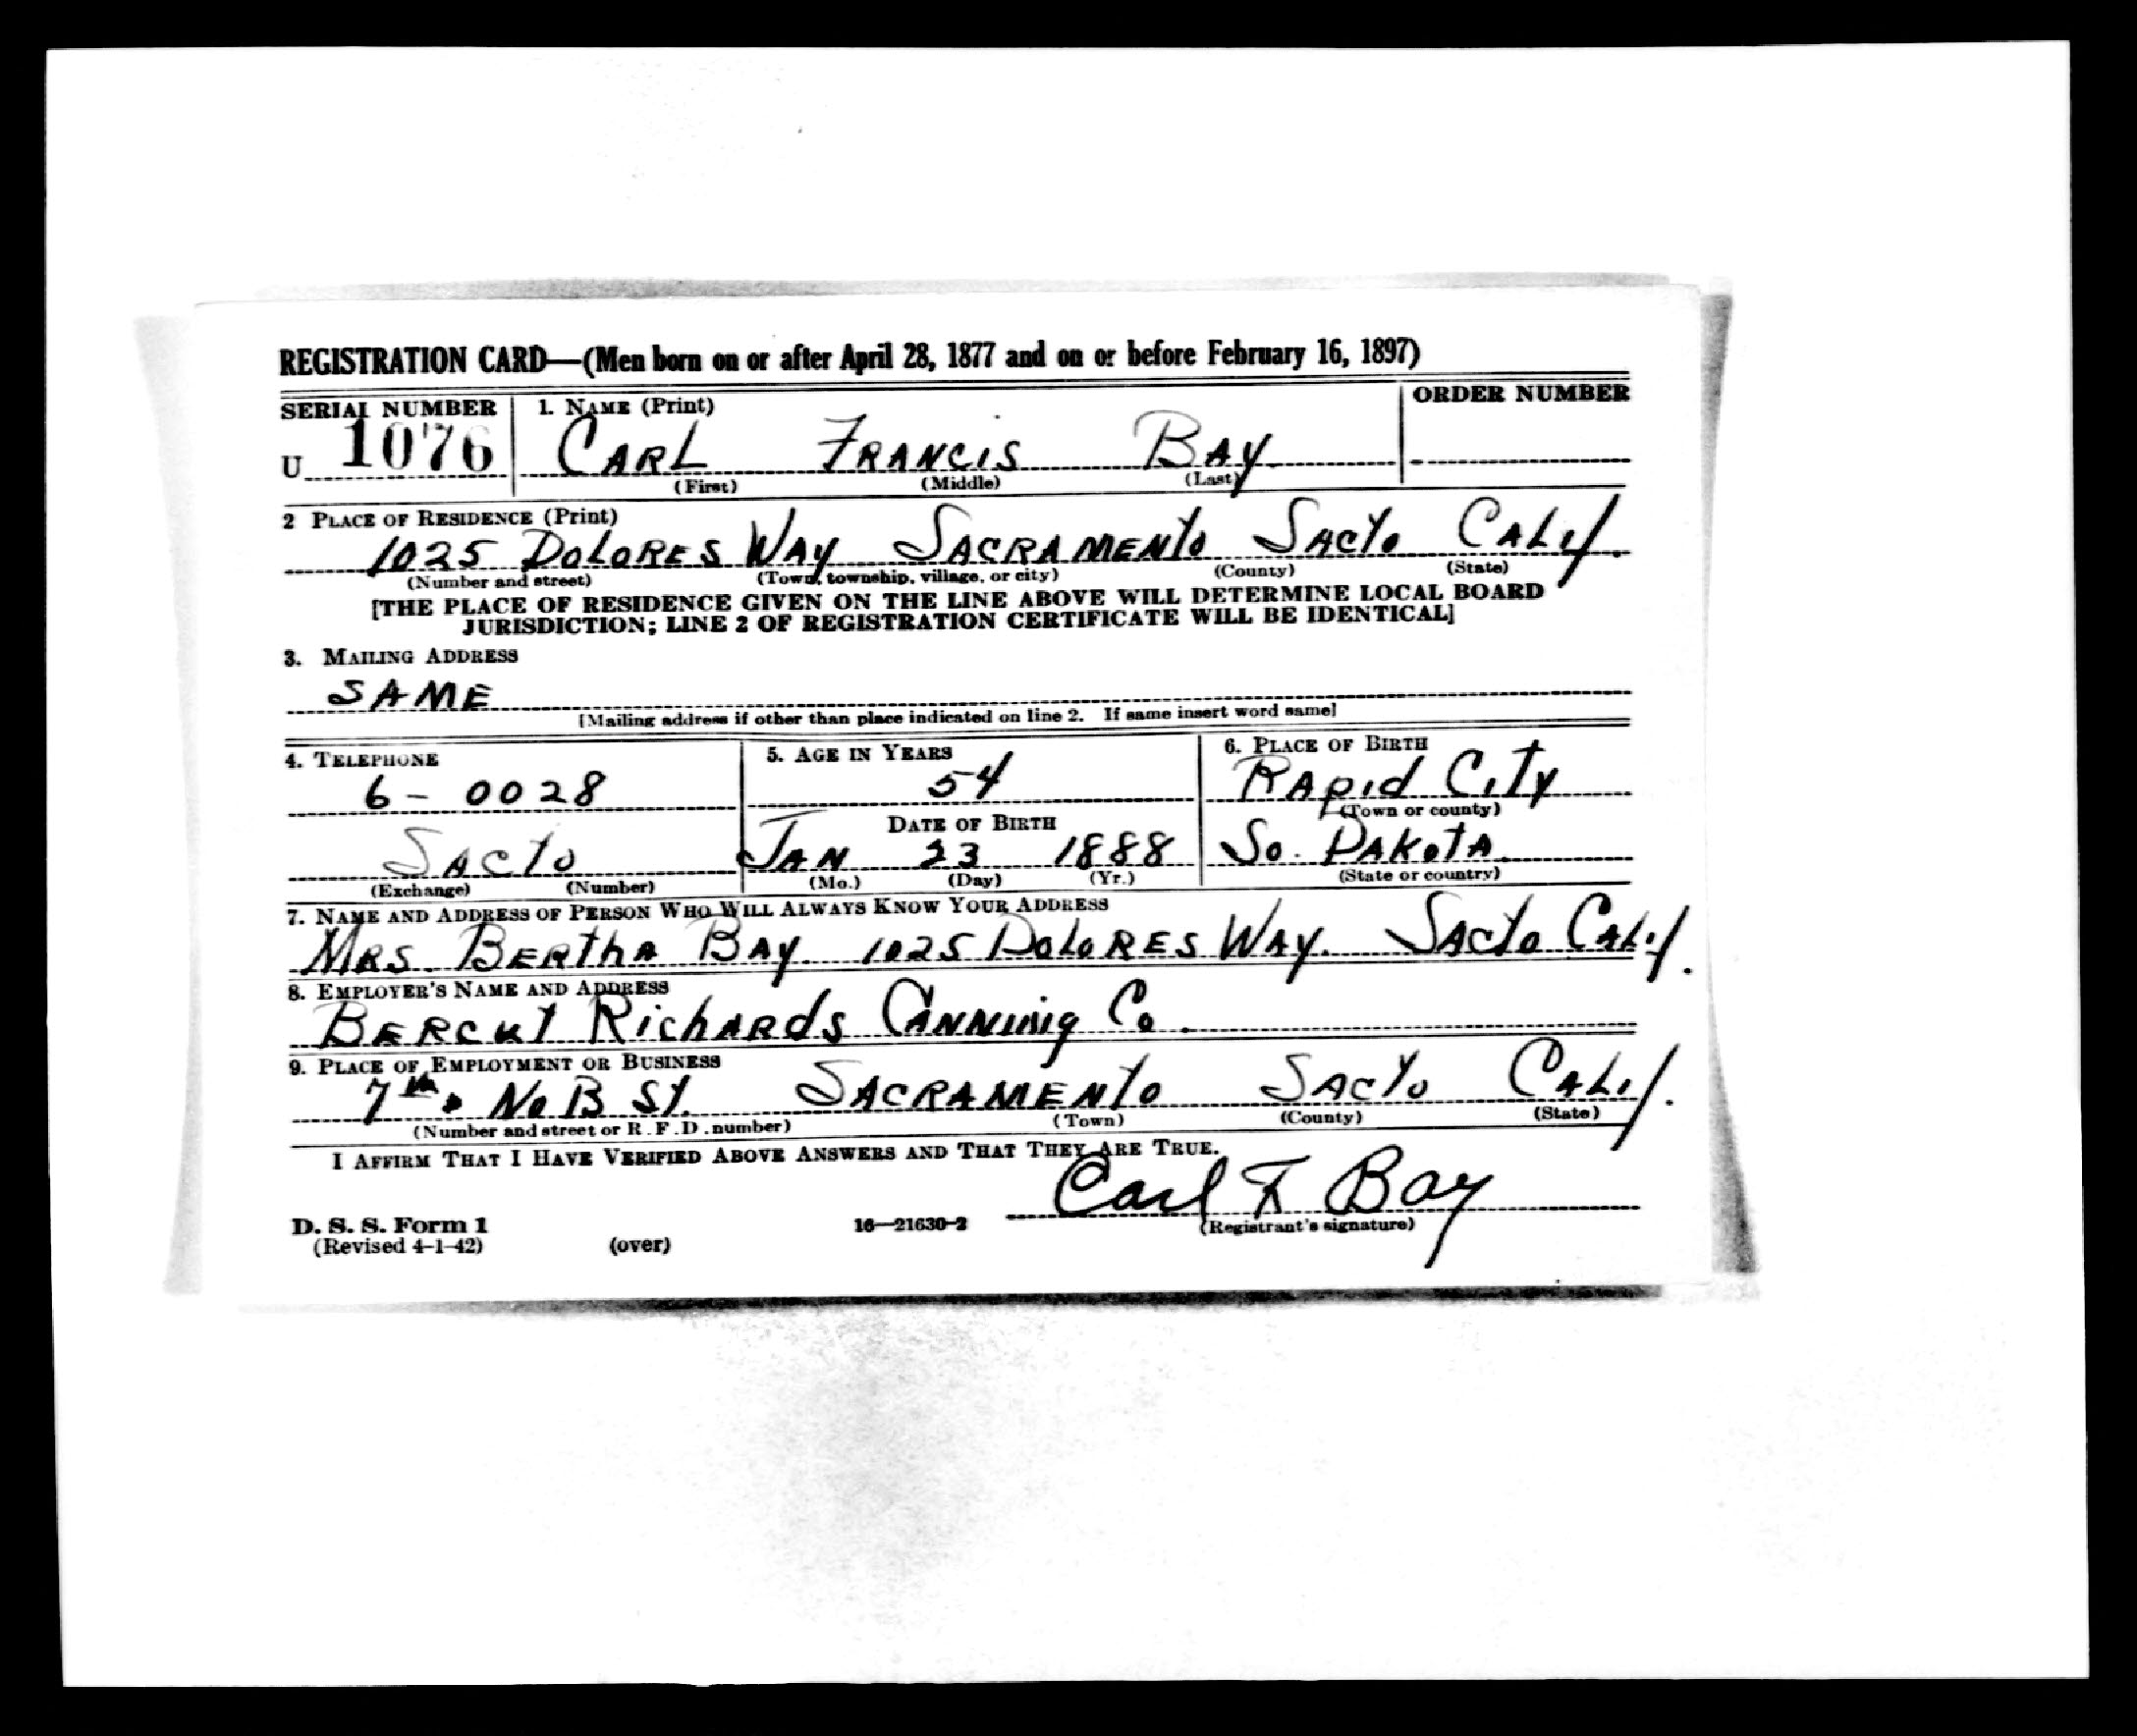 REGISTRATION CARD—(Men born on or after April 28, 1877 and on or before February 16, 1897)
SERIAL NUMBER 1. NAME (Print) ORDER NUMBER
U 1076 CARL FRANCIS BAY
(First) (Middle) (Last)
2 PLACE OF RESIDENCE (Print)
1025 DOLORES WAY SACRAMENTO SACTO CALIF.
(Number and street) (Town, township, village, or city) (County) (State)
[THE PLACE OF RESIDENCE GIVEN ON THE LINE ABOVE WILL DETERMINE LOCAL BOARD
JURISDICTION; LINE 2 OF REGISTRATION CERTIFICATE WILL BE IDENTICAL]
3. MAILING ADDRESS
SAME
[Mailing address if other than place indicated on line 2. If same insert word same]
4. TELEPHONE 5. AGE IN YEARS 6. PLACE OF BIRTH
6-0028 54 RAPID CITY
(Town or county)
DATE OF BIRTH
SACTO JAN 23 1888 SO. DAKOTA
(Exchange) (Number) (Mo.) (Day) (Yr.) (State or country)
7. NAME AND ADDRESS OF PERSON WHO WILL ALWAYS KNOW YOUR ADDRESS
MRS BERTHA BAY 1025 DOLORES WAY. SACTO CALIF.
8. EMPLOYER'S NAME AND ADDRESS
BERCUT RICHARDS CANNING CO.
9. PLACE OF EMPLOYMENT OR BUSINESS
7th No B St. SACRAMENTO SACTO CALIF.
(Number and street or R. F. D. number) (Town) (County) (State)
I AFFIRM THAT I HAVE VERIFIED ABOVE ANSWERS AND THAT THEY ARE TRUE.
Carl F Bay
D. S. S. Form 1 16—21630-2 (Registrant's signature)
(Revised 4-1-42) (over)